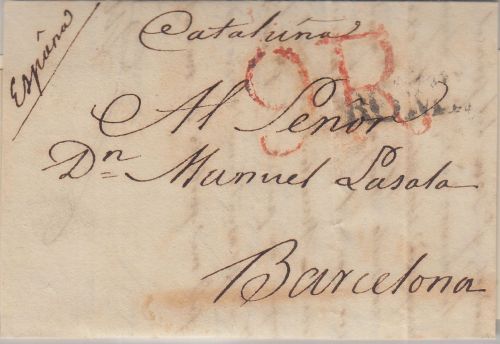 España
Cataluña
9R
ROMA
Al Señor
Dn Manuel Lasala
Barcelona